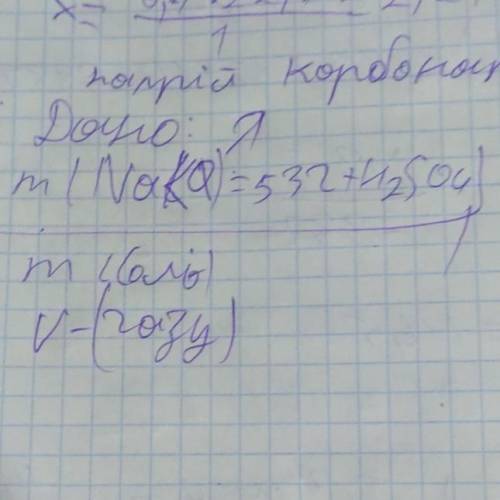 X =
1
натрій корбонат
Дано:
m (Na CO) = 53г + H2SO4)
m (солі)
V - (газу)